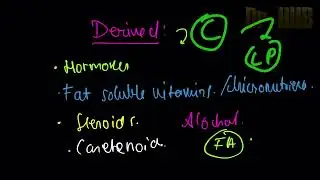 Derived: C LP
• Hormones
• Fat soluble vitamins. / Micronutrients
• Steroids. Alcohol
• Carotenoid. FA